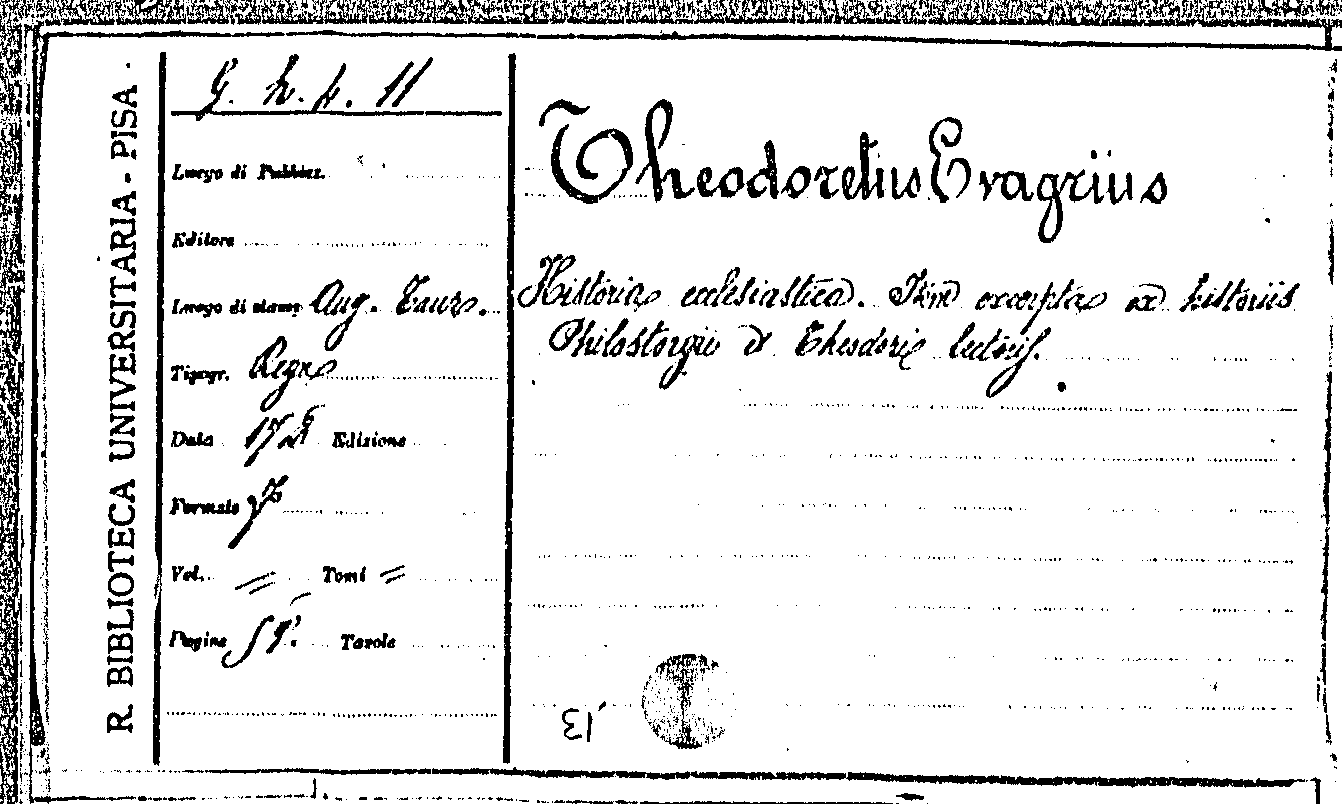 R. BIBLIOTECA UNIVERSITARIA - PISA -
G. h. 4. 11
Luogo di Pubblicz.
Editore
Luogo di stamp. Aug. Taur.
Tipogr. Regna
Data Edizione
Formato
Vol. = Tomi =
Pagine Tavole
Theodoretius Evagrius
Historia ecclesiastica. Item excerpta ex historiis
Philostorgii et Theodori lectoris.
13